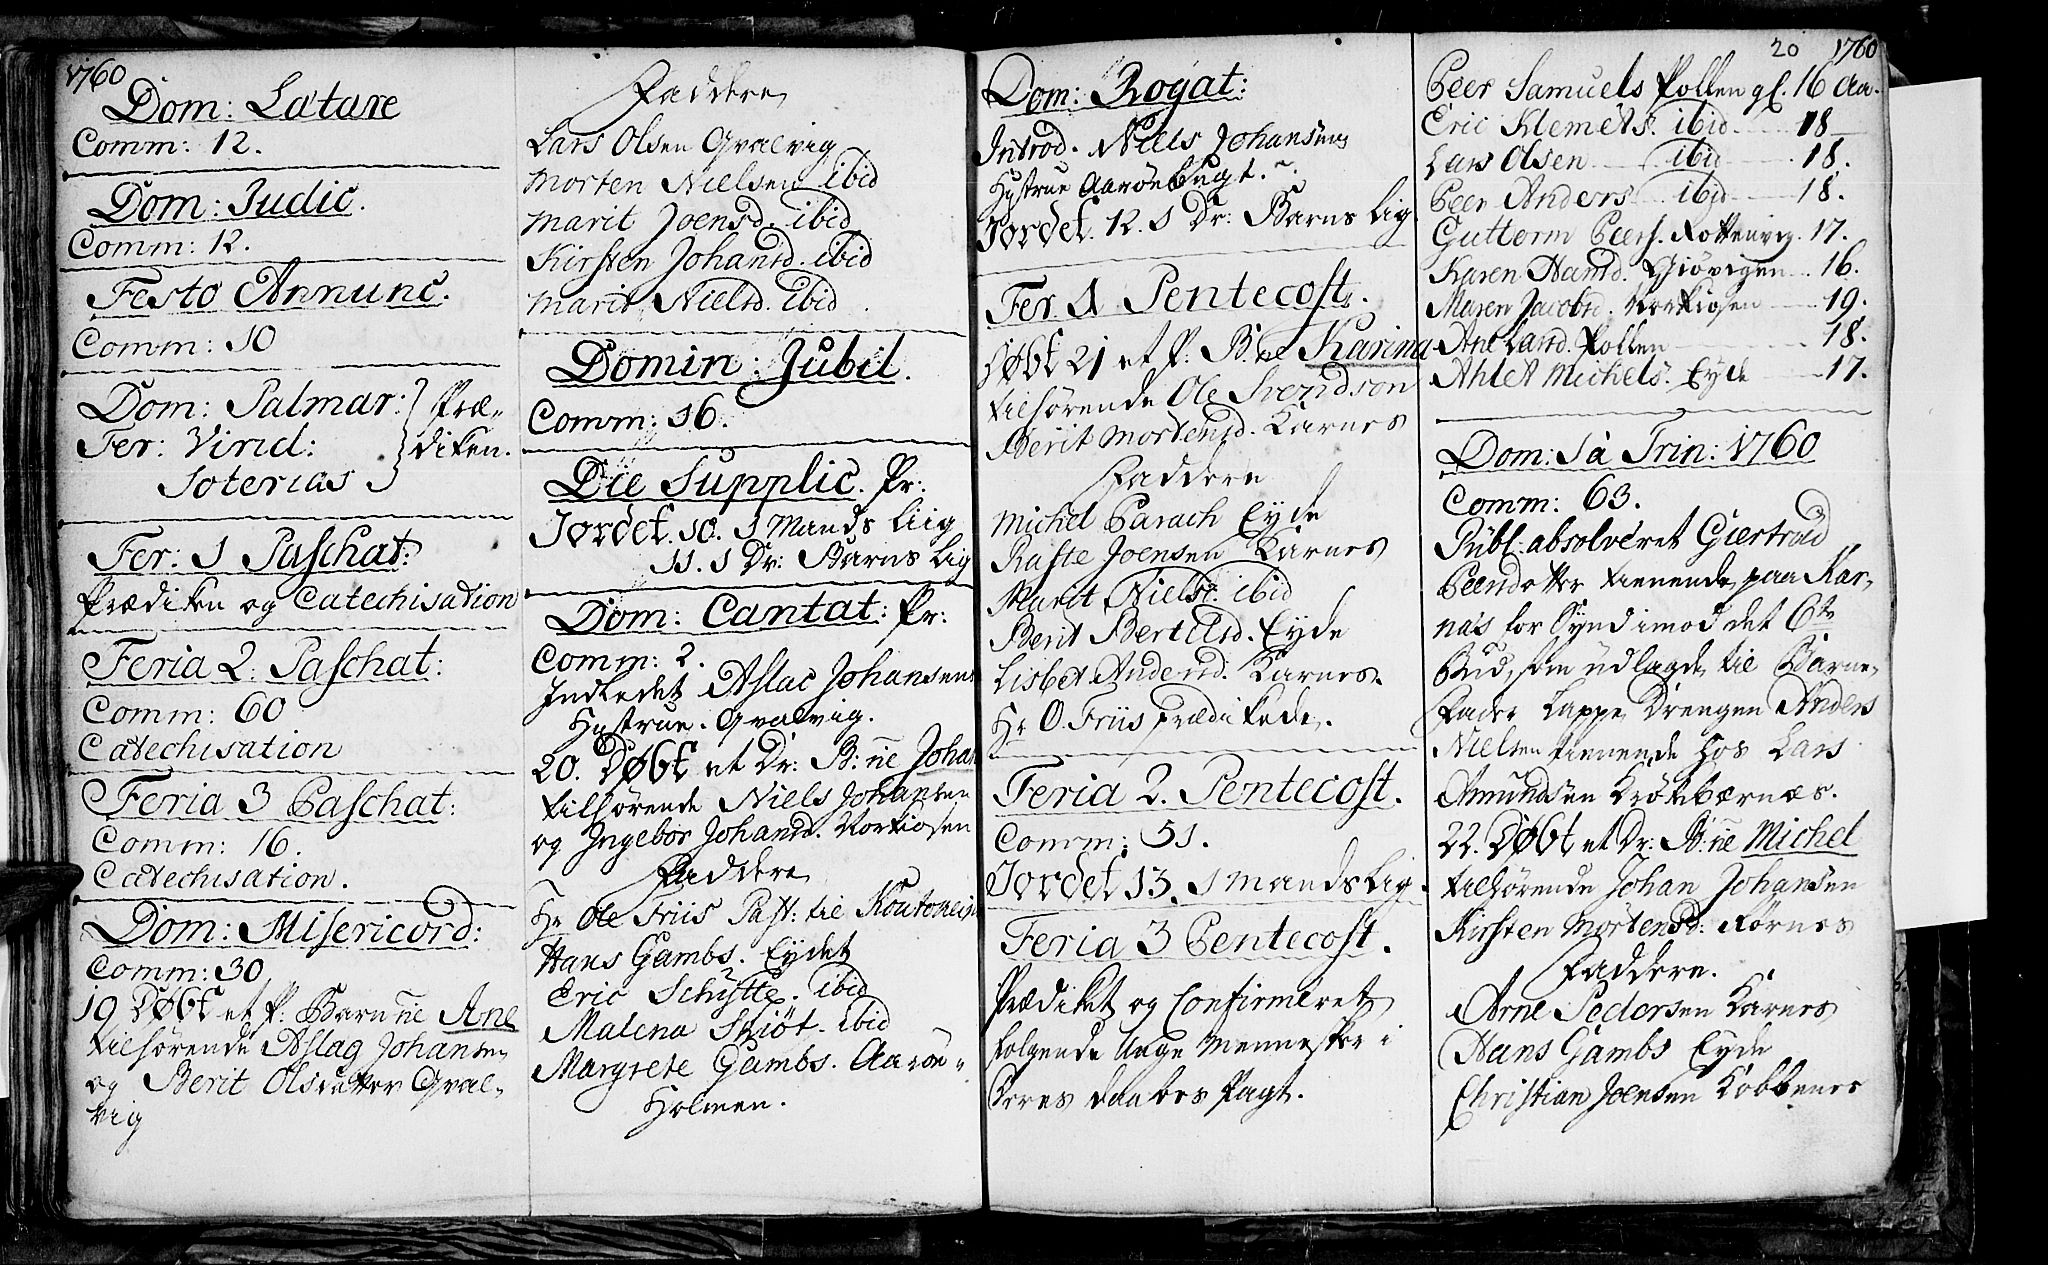 1760
Dom: Lætare
Comm: 12.
Dom: Judic.
Comm: 12.
Festo Annunc.
Comm: 10
Dom: Palmar: } Præ-
Fer: Virid: } diken.
Soterias }
Fer: 1 Paschat:
Prædiken og Catechisation
Feria 2: Paschat:
Comm: 60
Catechisation
Feria 3 Paschat:
Comm: 16.
Catechisation.
Dom: Misericord:
Comm: 30
19 Døbt et P: Barn ñe Ane
tilhørende Aslag Johansen
og Berit Olsdatter Qval-
vig
Faddere
Lars Olsen Qvalvig
Morten Nielsen ibid
Marit Joensd. ibid
Kirsten Johansd. ibid
Marit Nielsd. ibid
Domin: Jubil.
Comm: 16.
Die Supplic. Pr:
Jordet. 10. 1 Mands Liig
11. 1 Dr: Barns Lig
Dom: Cantat: Pr:
Comm: 2.
Indledet Aslac Johansens
Hustrue. Qvalvig.
20. Døbt et Dr: B: ñe Johan
tilhørende Niels Johansen
og Ingebor Johansd. Norkiosen
Faddere
Hr Ole Friis Past: til Koutokein
Hans Gambs. Eydet
Eric Schytte. ibid
Malena Skiøt. ibid
Margrete Gambs. Aarøe-
Holmen.
Dom: Rogat:
Introd. Niels Johansens
Hustrue Aarøebugt.
Jordet. 12. 1 Dr: Barns Lig
Fer. 1 Pentecost.
Døbt 21 et P: B. ñe Karina
tilhørende Ole Svendson
Berit Mortensd. Karnes
Faddere
Michel Parach Eyde
Rafte Joensen Karnes
Marit Nielsd. ibid
Berit Bertelsd. Eyde
Lisbet Andersd. Karnes.
Hr O. Friis Prædikede.
Feria 2. Pentecost.
Comm: 51.
Jordet 13. 1 Mands Lig.
Feria 3 Pentecost.
Prædiket og Confirmeret
følgende Unge Mennesker i
Deres daabes Pagt.
20 1760
Peer Samuels Pollen gl. 16 Aar.
Eric Klemets. ibid 18
Lars Olsen ibid 18.
Peer Anders ibid 18.
Guttorm Peers. Rottenvig. 17.
Karen Hansd. Giøvigen 16.
Maren Jacobsd. Norkiosen 19.
Ane Larsd. Pollen 18.
Ahlet Michels. Eyde 17.
Dom: 1 à Trin: 1760
Comm: 63.
Publ. absolveret Giertrud
Peersdotter tienende paa Kar-
næs for Synd imod det 6te
Bud, som udlagde til Barne-
Fader Lappe Drengen Anders
Nielsen tienende hos Lars
Amundsen Krøkebærnæs.
22. Døbt et Dr: B: ñe Michel
tilhørende Johan Johansen
Kirsten Mortensd: Rørnes
Faddere.
Arne Pedersen Karnes
Hans Gambs Eyde
Christian Joensen Kobbenes